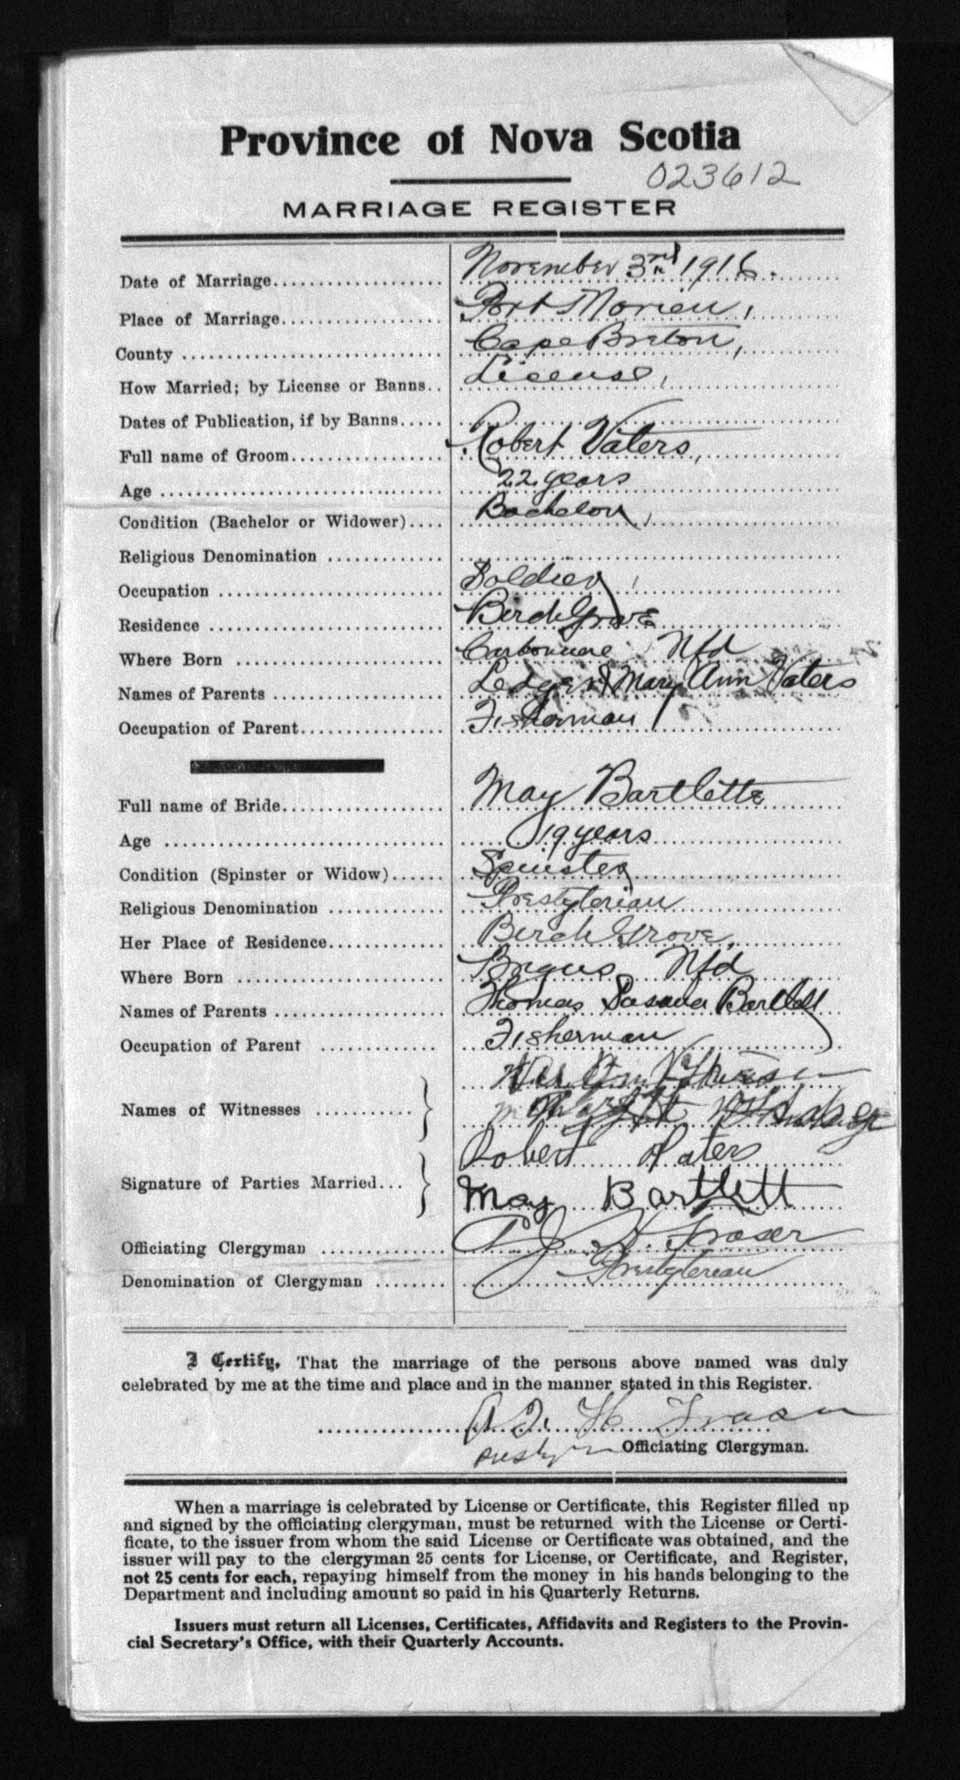 Province of Nova Scotia
023612
MARRIAGE REGISTER
Date of Marriage November 3rd 1916.
Place of Marriage Port Morien,
County Cape Breton,
How Married; by License or Banns License,
Dates of Publication, if by Banns
Full name of Groom Robert Vaters,
Age 22 years
Condition (Bachelor or Widower) Bachelor,
Religious Denomination
Occupation Soldier,
Residence Birch Grove
Where Born Carbonear Nfd
Names of Parents & Mary Ann Vaters
Occupation of Parent Fisherman
Full name of Bride May Bartlette
Age 19 years
Condition (Spinster or Widow) Spinster
Religious Denomination Presbyterian
Her Place of Residence Birch Grove,
Where Born Brigus Nfd
Names of Parents Thomas Bartlett
Occupation of Parent Fisherman
Names of Witnesses
Signature of Parties Married Robert Vaters
May Bartlett
Officiating Clergyman Fraser
Denomination of Clergyman Presbyterian
I Certify, That the marriage of the persons above named was duly
celebrated by me at the time and place and in the manner stated in this Register.
Fraser
Officiating Clergyman.
When a marriage is celebrated by License or Certificate, this Register filled up
and signed by the officiating clergyman, must be returned with the License or Certi-
ficate, to the issuer from whom the said License or Certificate was obtained, and the
issuer will pay to the clergyman 25 cents for License, or Certificate, and Register,
not 25 cents for each, repaying himself from the money in his hands belonging to the
Department and including amount so paid in his Quarterly Returns.
Issuers must return all Licenses, Certificates, Affidavits and Registers to the Provin-
cial Secretary's Office, with their Quarterly Accounts.